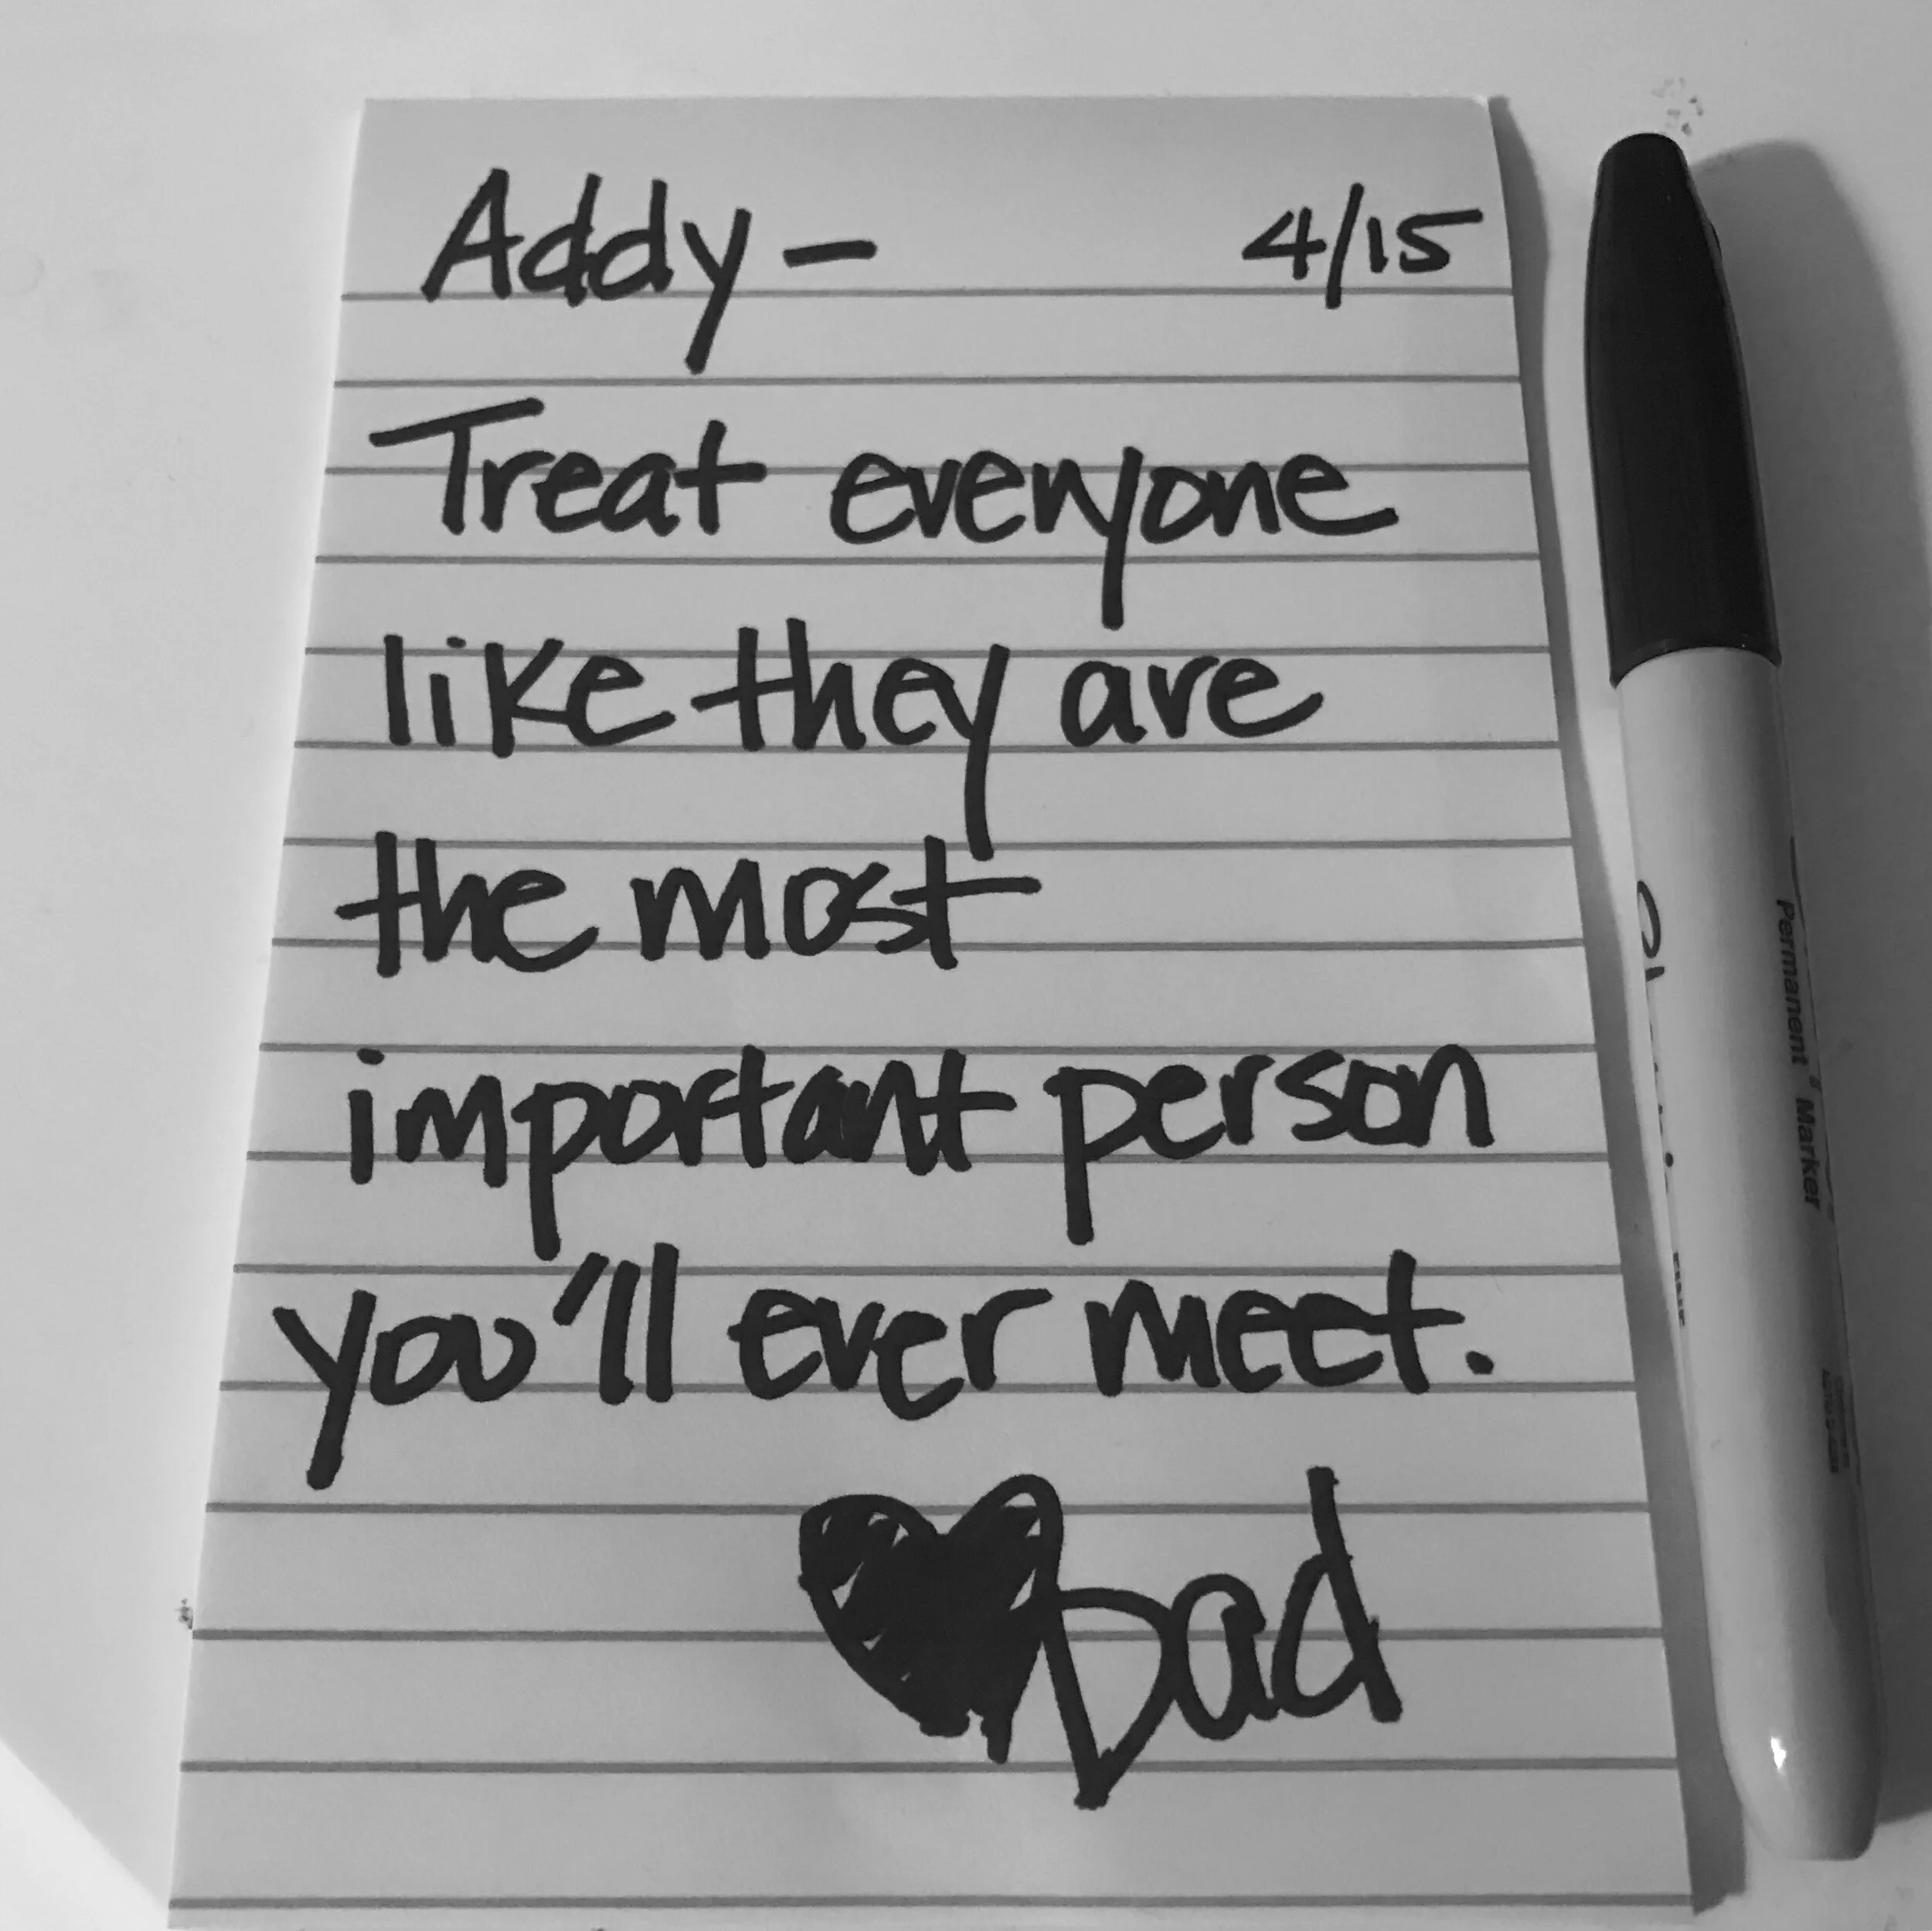 Addy - 4/15
Treat everyone
like they are
the most
important person
you'll ever meet.
Dad
Permanent Marker